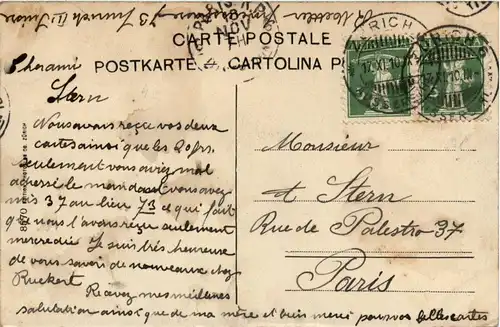 CARTE POSTALE
POSTKARTE CARTOLINA
Cher ami
Stern
Nous avons reçce vos deux
cartes ainsi que les 20 frs,
seulement vous aviez mal
adressé le mandat vous avez
mis 37 au lieu 73 ce qui fait
que nous l'avons reçu seulement
mercredie Je suis très heureuse
de vous savoir de nouveaux chez
Ruckert Recevez mes meilleures
salutation ainsi que de ma mère et bien merci pour vos belles cartes
Monsieur
A Stern
Rue de Palestro 37
Paris
8870
ZÜRICH